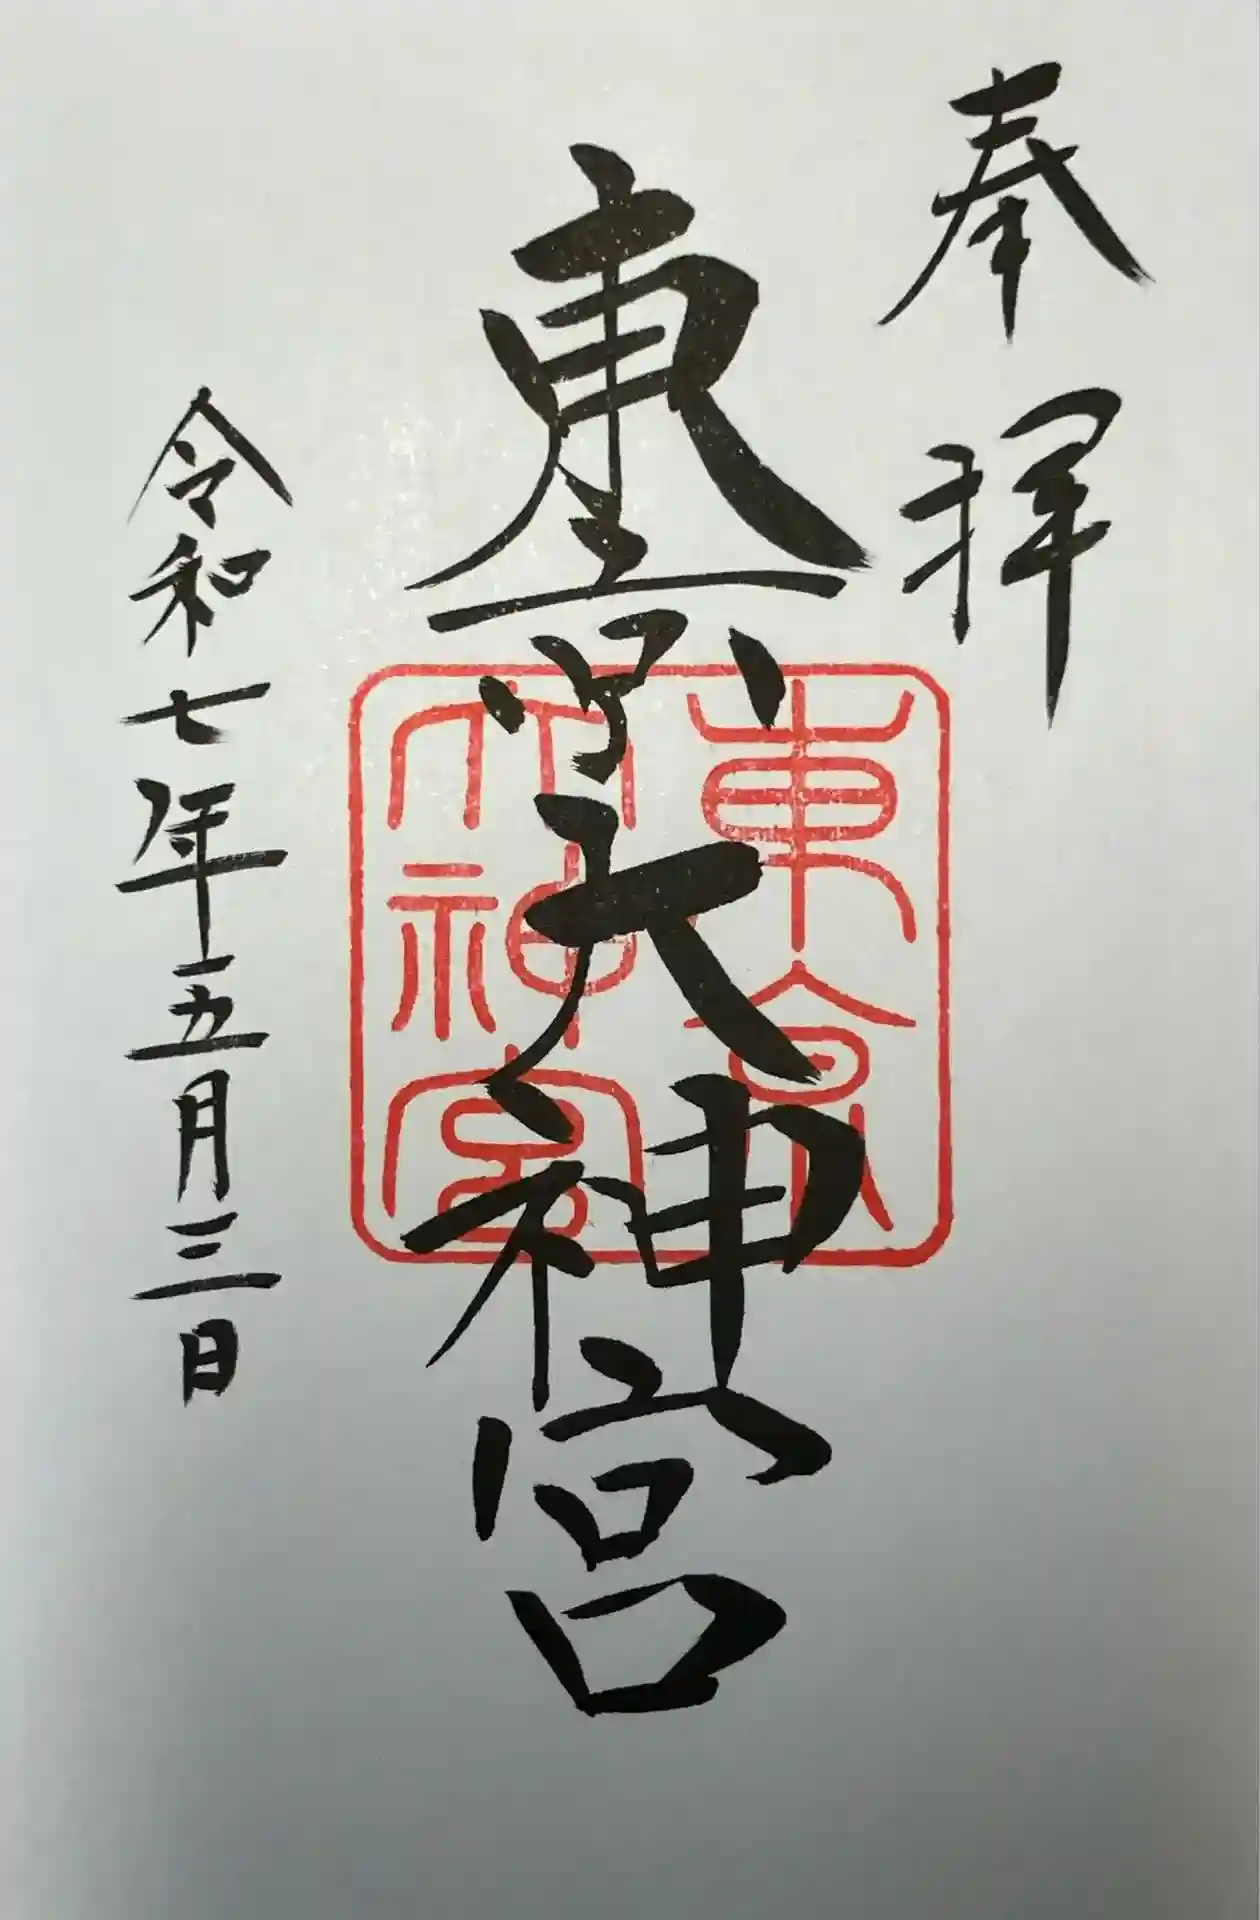 奉拝
東京大神宮
東京
大神宮
令和七年五月三日